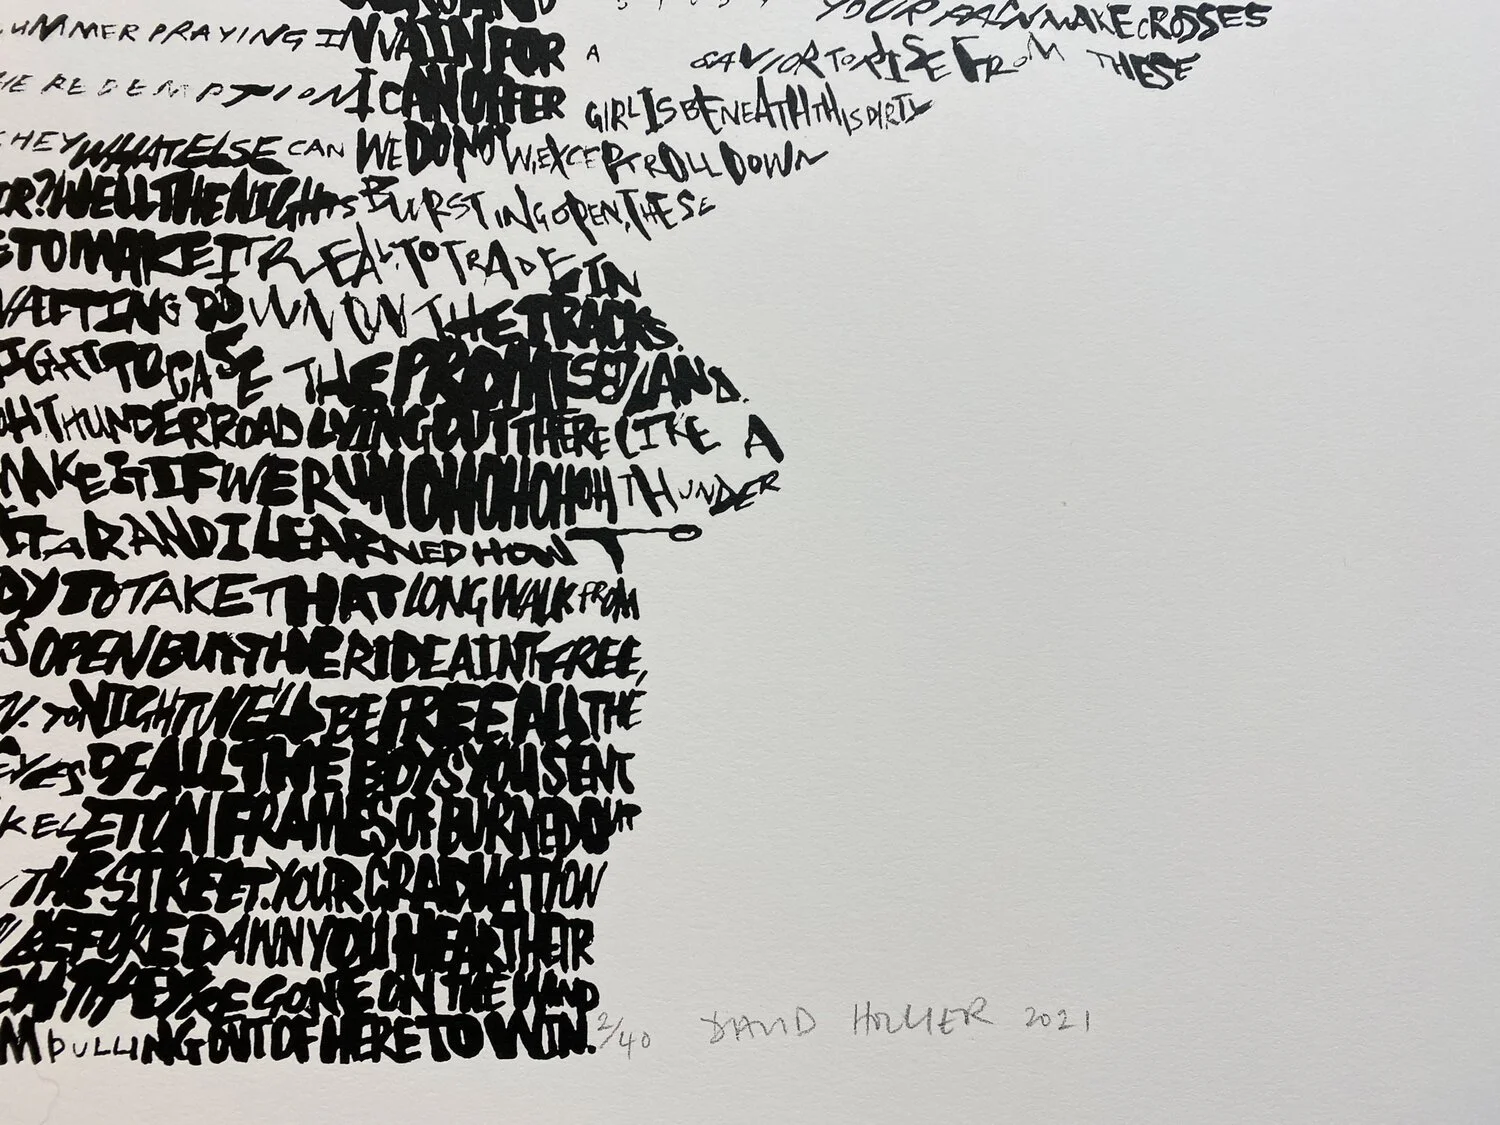 YOUR PAIN MAKE CROSSES
SUMMER PRAYING IN VAIN FOR A SAVIOR TO RISE FROM THESE
HE REDEMPTION I CAN OFFER GIRL IS BENEATH THIS DIRTY
HEY WHAT ELSE CAN WE DO NOW, EXCEPT ROLL DOWN
IR? WELL THE NIGHTS BURSTING OPEN, THESE
E TO MAKE IT REAL. TO TRADE IN
WAITING DOWN ON THE TRACKS.
IGHT TO CASE THE PROMISED LAND.
OH THUNDER ROAD LYING OUT THERE LIKE A
MAKE IT IF WE RUN OH OH OH OH OH THUNDER
IT A R AND I LEARNED HOW T
DY TO TAKE THAT LONG WALK FROM
S OPEN BUT THE RIDE AINT FREE,
N. TONIGHT WE'LL BE FREE ALL THE
EYES OF ALL THE BOYS YOU SENT
KELETON FRAMES OF BURNED OUT
THE STREET. YOUR GRADUATION
BEFORE DAWN YOU HEAR THEIR
CH THEY'RE GONE ON THE WIND
M PULLING OUT OF HERE TO WIN.
2/40 DAVID HOLLIER 2021